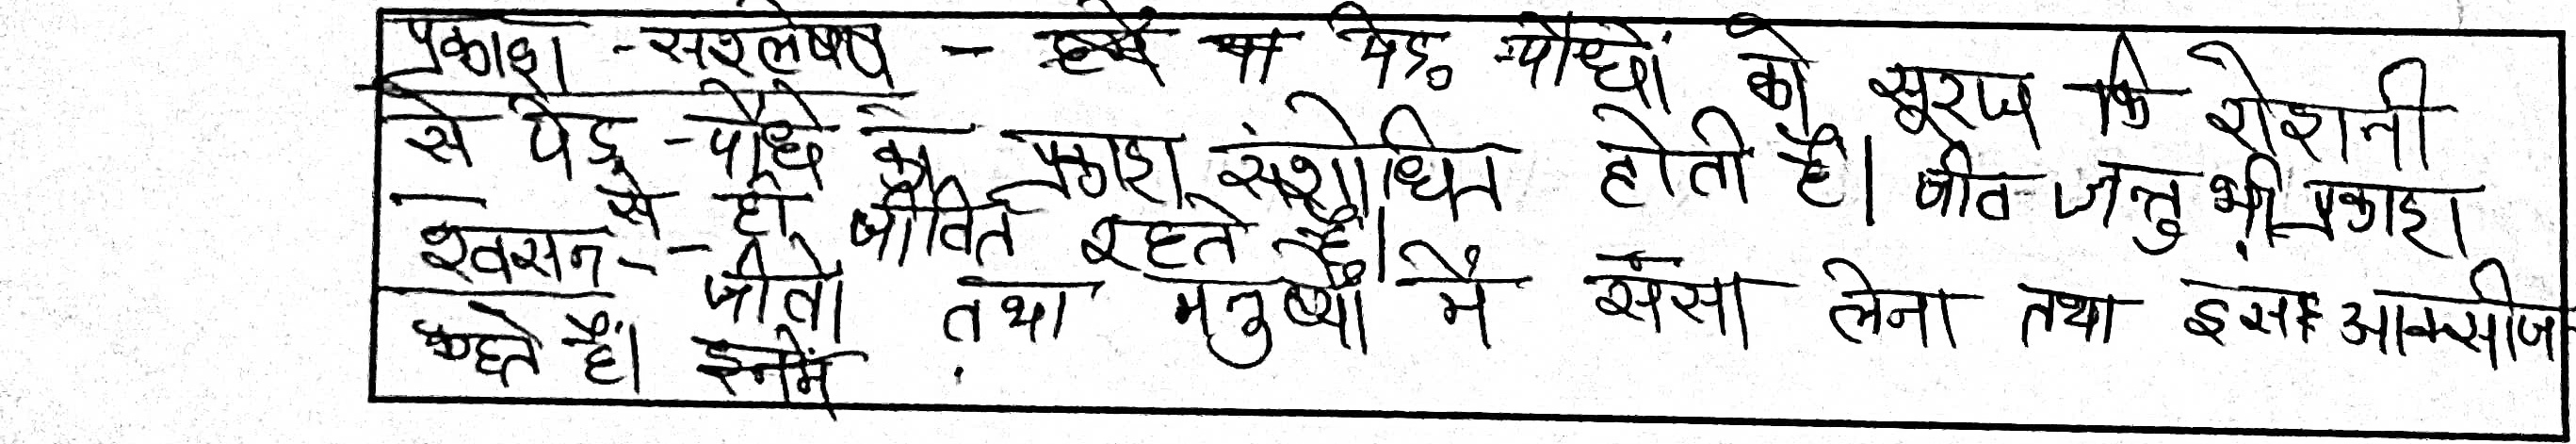 प्रकाश - सश्लेषण - हमें या पेड़ -पौधों को सूरज कि रोशनी
से पेड़ -पौधे का प्रकाश संशोधित होती है। जीव-जन्तु भी प्रकाश
से ही जीवित रहते हैं।
श्वसन - जीवों तथा मनुष्यों में सँसा लेना तथा इसे आक्सीज
कहते हैं। इनमें